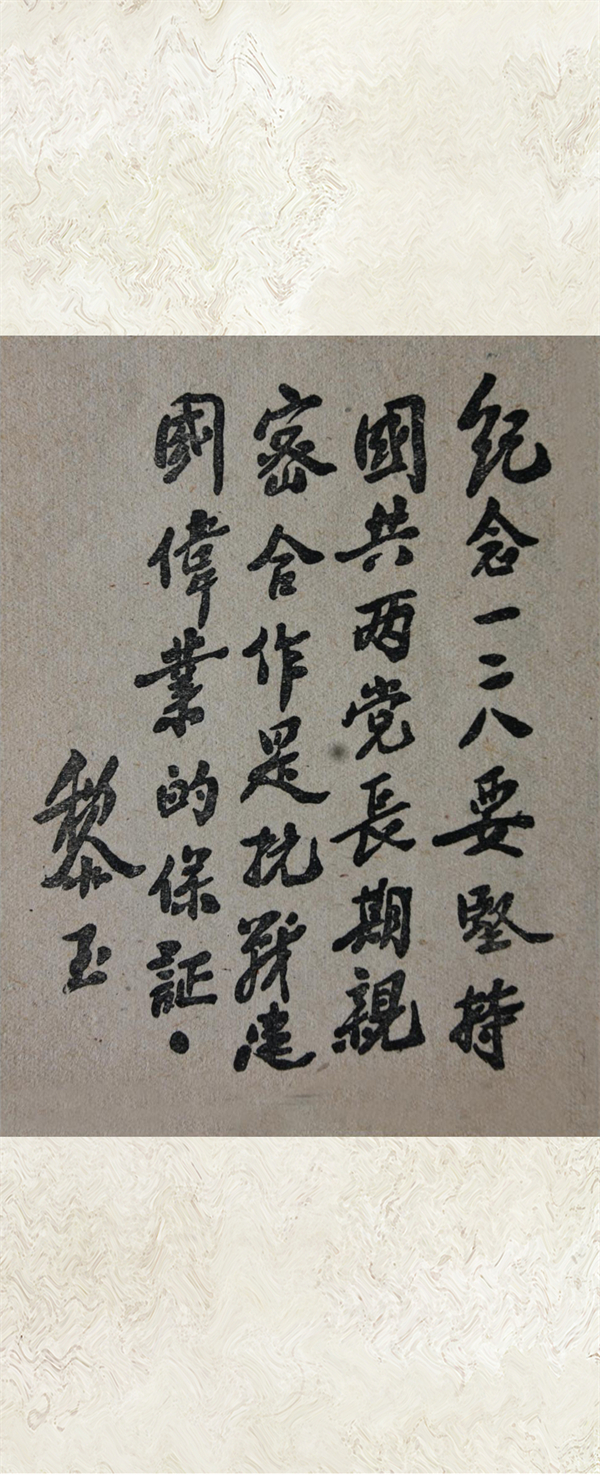 紀念一二八要堅持
國共两党長期親
密合作是抗战建
國偉業的保証.
黎玉